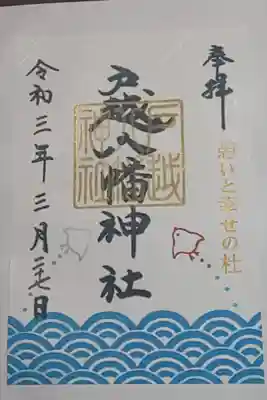 奉拝
勾いと幸せの杜
戸越八幡神社
戸越
八幡
神社
令和三年三月二七日